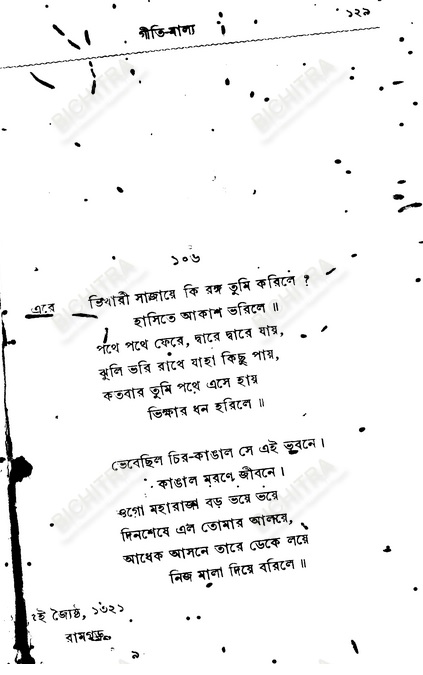 গীতি-মাল্য
১২৯
১০৬
এবে
ভিখারী সাজায়ে কি রঙ্গ তুমি করিলে ?
হাসিতে আকাশ ভরিলে ॥
পথে পথে ফেরে, দ্বারে দ্বারে যায়,
ঝুলি ভরি রাখে যাহা কিছু পায়,
কতবার তুমি পথে এসে হায়
ভিক্ষার ধন হরিলে ॥
ভেবেছিল চির-কাঙাল সে এই ভুবনে।
কাঙাল মরণে জীবনে।
ওগো মহারাজা বড় ভয়ে ভয়ে
দিনশেষে এল তোমার আলয়ে,
আধেক আসনে তারে ডেকে লয়ে
নিজ মালা দিয়ে বরিলে ॥
ই জ্যৈষ্ঠ, ১৩২১
রামগড়
৯
BICHITRA
BICHITRA
BICHITRA
BICHITRA
BICHITRA
BICHITRA